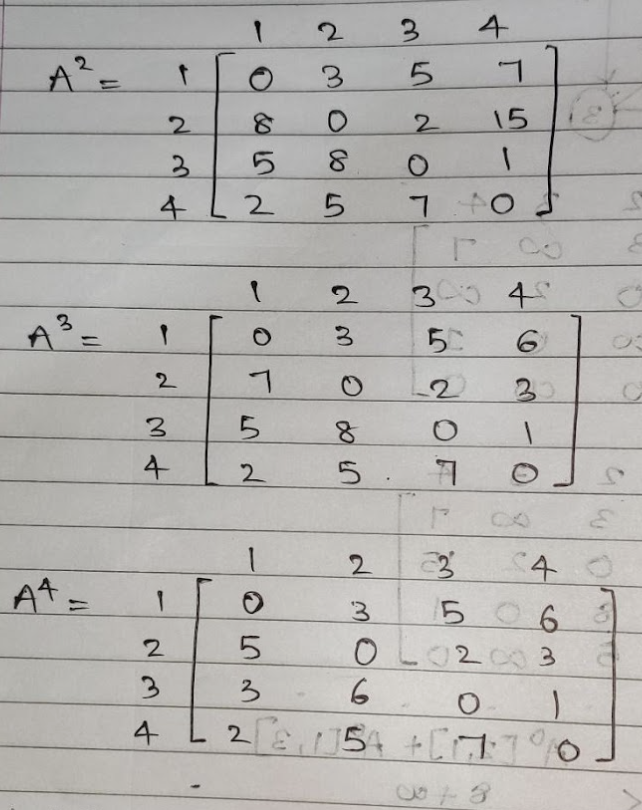 1 2 3 4
A² = 1 [ 0 3 5 7
2 8 0 2 15
3 5 8 0 1
4 2 5 7 0 ]
1 2 3 4
A³ = 1 [ 0 3 5 6
2 7 0 2 3
3 5 8 0 1
4 2 5 7 0 ]
1 2 3 4
A⁴ = 1 [ 0 3 5 6
2 5 0 2 3
3 3 6 0 1
4 2 5 7 0 ]